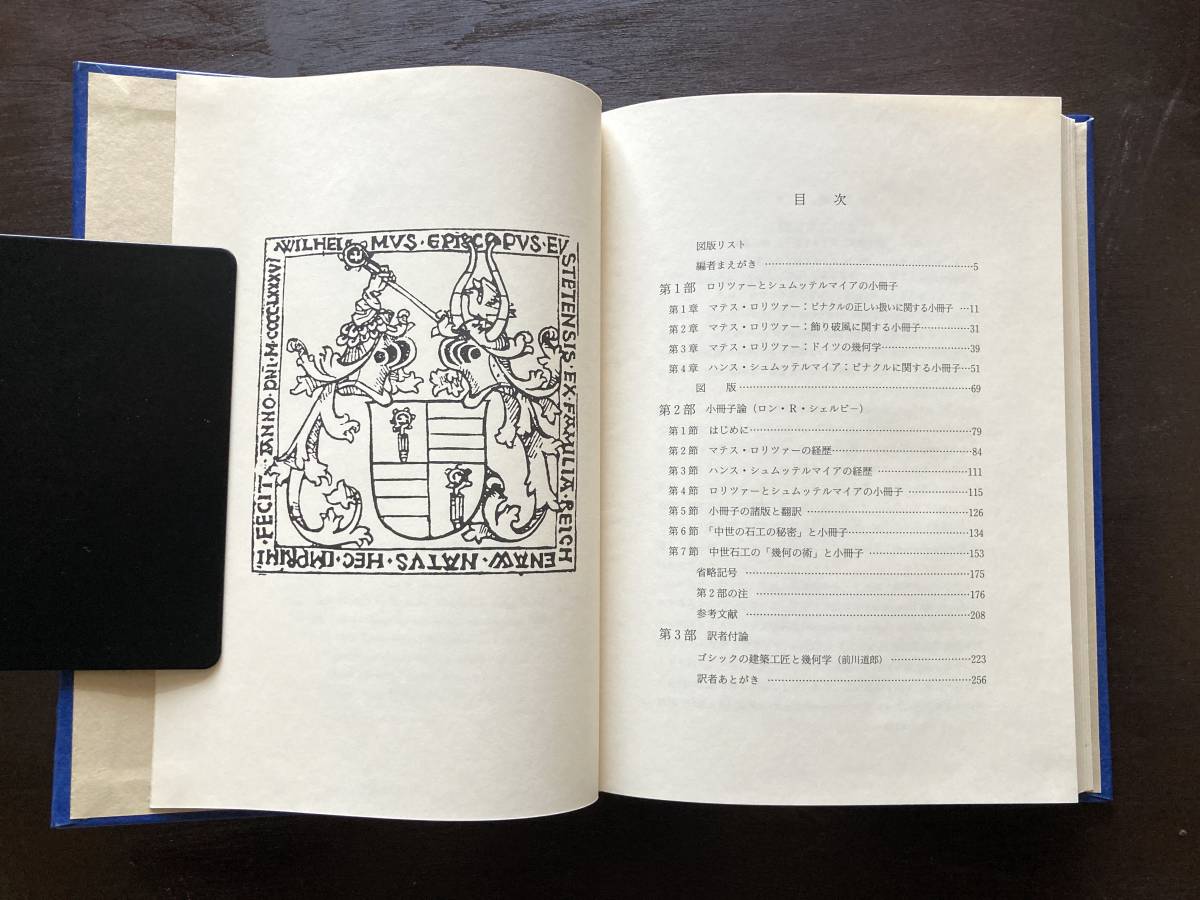 WILHELMVS · EPISCOPVS · EV
STETENSIS · EX · FAMILIA · REICH
ENAW · NATVS · HEC · IMPRIMI
· FECIT · ANNO · DNI · M · CCCC · LXXXVI
目 次
図版リスト
編者まえがき …5
第1部 ロリツァーとシュムッテルマイアの小冊子
第1章 マテス・ロリツァー：ピナクルの正しい扱いに関する小冊子 …11
第2章 マテス・ロリツァー：飾り破風に関する小冊子…31
第3章 マテス・ロリツァー：ドイツの幾何学…39
第4章 ハンス・シュムッテルマイア：ピナクルに関する小冊子…51
図 版…69
第2部 小冊子論（ロン・R・シェルビー）
第1節 はじめに…79
第2節 マテス・ロリツァーの経歴…84
第3節 ハンス・シュムッテルマイアの経歴 …111
第4節 ロリツァーとシュムッテルマイアの小冊子 …115
第5節 小冊子の諸版と翻訳…126
第6節 「中世の石工の秘密」と小冊子…134
第7節 中世石工の「幾何の術」と小冊子 …153
省略記号 …175
第2部の注 …176
参考文献 …208
第3部 訳者付論
ゴシックの建築工匠と幾何学（前川道郎）…223
訳者あとがき …256